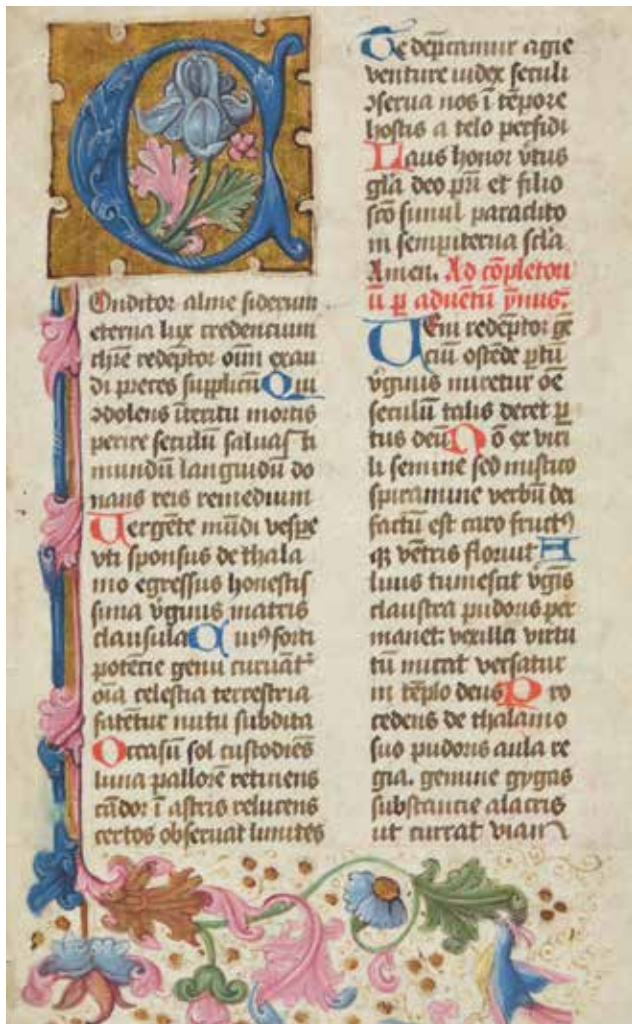 C
Onditor alme siderum
eterna lux credencium
christe redẽptor oĩm exau
di preces supplicũ Qui
ꝯdolens ĩteritu mortis
perire seculũ saluasti
mundũ languidũ do
nans reis remedium
Uergẽte mũdi vespe
vti sponsus de thala
mo egressus honestis
sima v̾ginis matris
clausula Cuiꝰ forti
potẽcie genu curuãt᷑
oĩa celestia terrestria
fatẽtur nutu subdita
Occasũ sol custodiẽs
luna pallorẽ retinens
cãdor ĩ astris relucens
certos obseruat limites
Te dep̃camur agie
venture iudex seculi
ꝯserua nos ĩ tẽpore
hostis a telo perfidi
Laus honor v̾tus
gl̃a deo pr̃i et filio
sc̃o simul paraclito
in sempiterna sc̃la
Amen. Ad cõpletori
ũ ꝑ aduẽtũ ymnus.
Ueni redẽptor gẽ
ciũ ostẽde ꝑtũ
v̾ginis miretur oẽ
seculũ talis decet ꝑ
tus deũ Nõ ex viri
li semine sed mistico
spiramine verbũ dei
factũ est caro fructꝰ
qꝫ vẽtris floruit A
luus tumescit v̾gĩs
claustra pudoris per
manet: vexilla virtu
tũ micãt versatur
in tẽplo deus Pro
cedens de thalamo
suo pudoris aula re
gia. gemine gygas
substancie alacris
ut currat viam